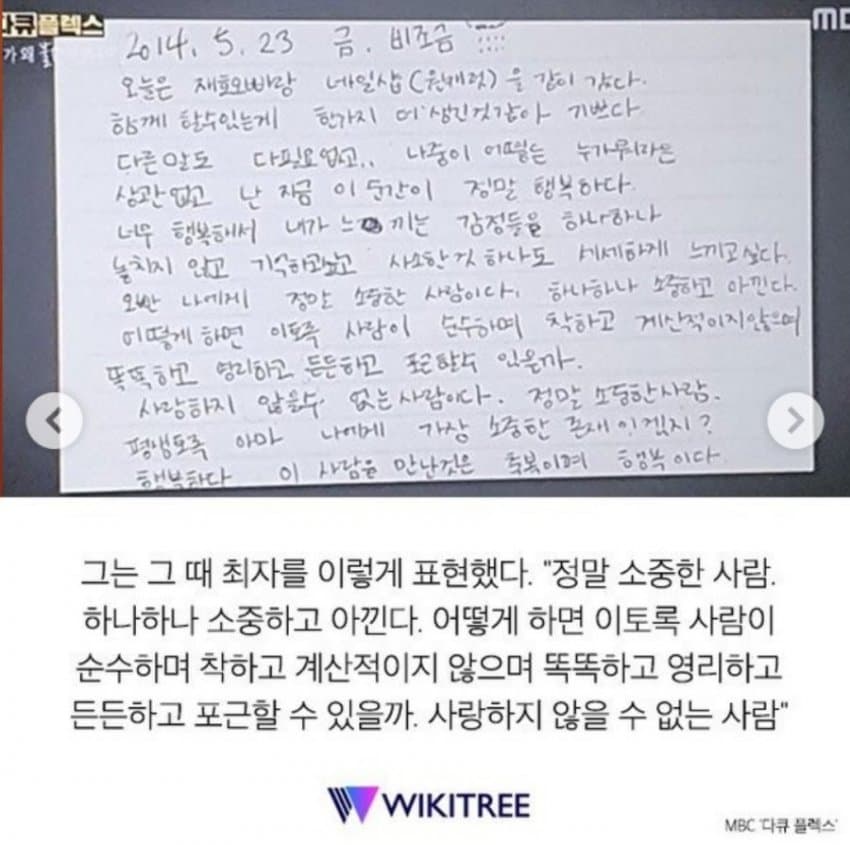 다큐플렉스
MB
가 왜 불
2014. 5. 23 금. 비조금
오늘은 재호오빠랑 네일샵(원캐럿)을 같이 갔다.
함께 할수있는게 한가지 더 생긴것같아 기쁘다
다른말도 다필요없고.. 나중이 어떻든 누가뭐라든
상관없고 난 지금 이 순간이 정말 행복하다.
너무 행복해서 내가 느끼는 감정들을 하나하나
놓치지 않고 기억하고싶고 사소한것 하나도 세세하게 느끼고싶다.
오빤 나에게 정말 소중한 사람이다. 하나하나 소중하고 아낀다.
어떻게 하면 이토록 사람이 순수하며 착하고 계산적이지않으며
똑똑하고 영리하고 든든하고 포근할수 있을까.
사랑하지 않을수 없는사람이다. 정말 소중한사람.
평생토록 아마 나에게 가장 소중한 존재이겠지?
행복하다 이 사람을 만난것은 축복이며 행복이다.
그는 그 때 최자를 이렇게 표현했다. "정말 소중한 사람.
하나하나 소중하고 아낀다. 어떻게 하면 이토록 사람이
순수하며 착하고 계산적이지 않으며 똑똑하고 영리하고
든든하고 포근할 수 있을까. 사랑하지 않을 수 없는 사람"
WIKITREE
MBC '다큐 플렉스'